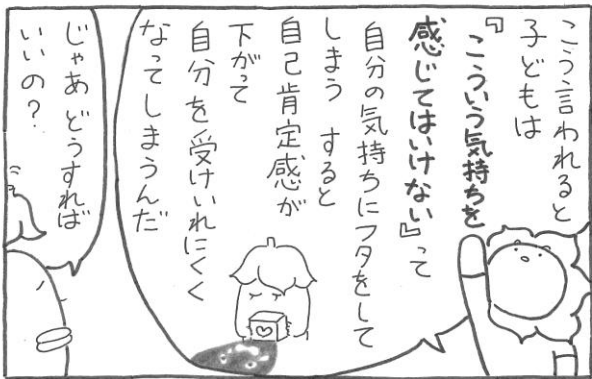 こう言われると
子どもは
『こういう気持ちを
感じてはいけない』って
自分の気持ちにフタをして
しまう すると
自己肯定感が
下がって
自分を受けいれにくく
なってしまうんだ
じゃあ どうすれば
いいの?